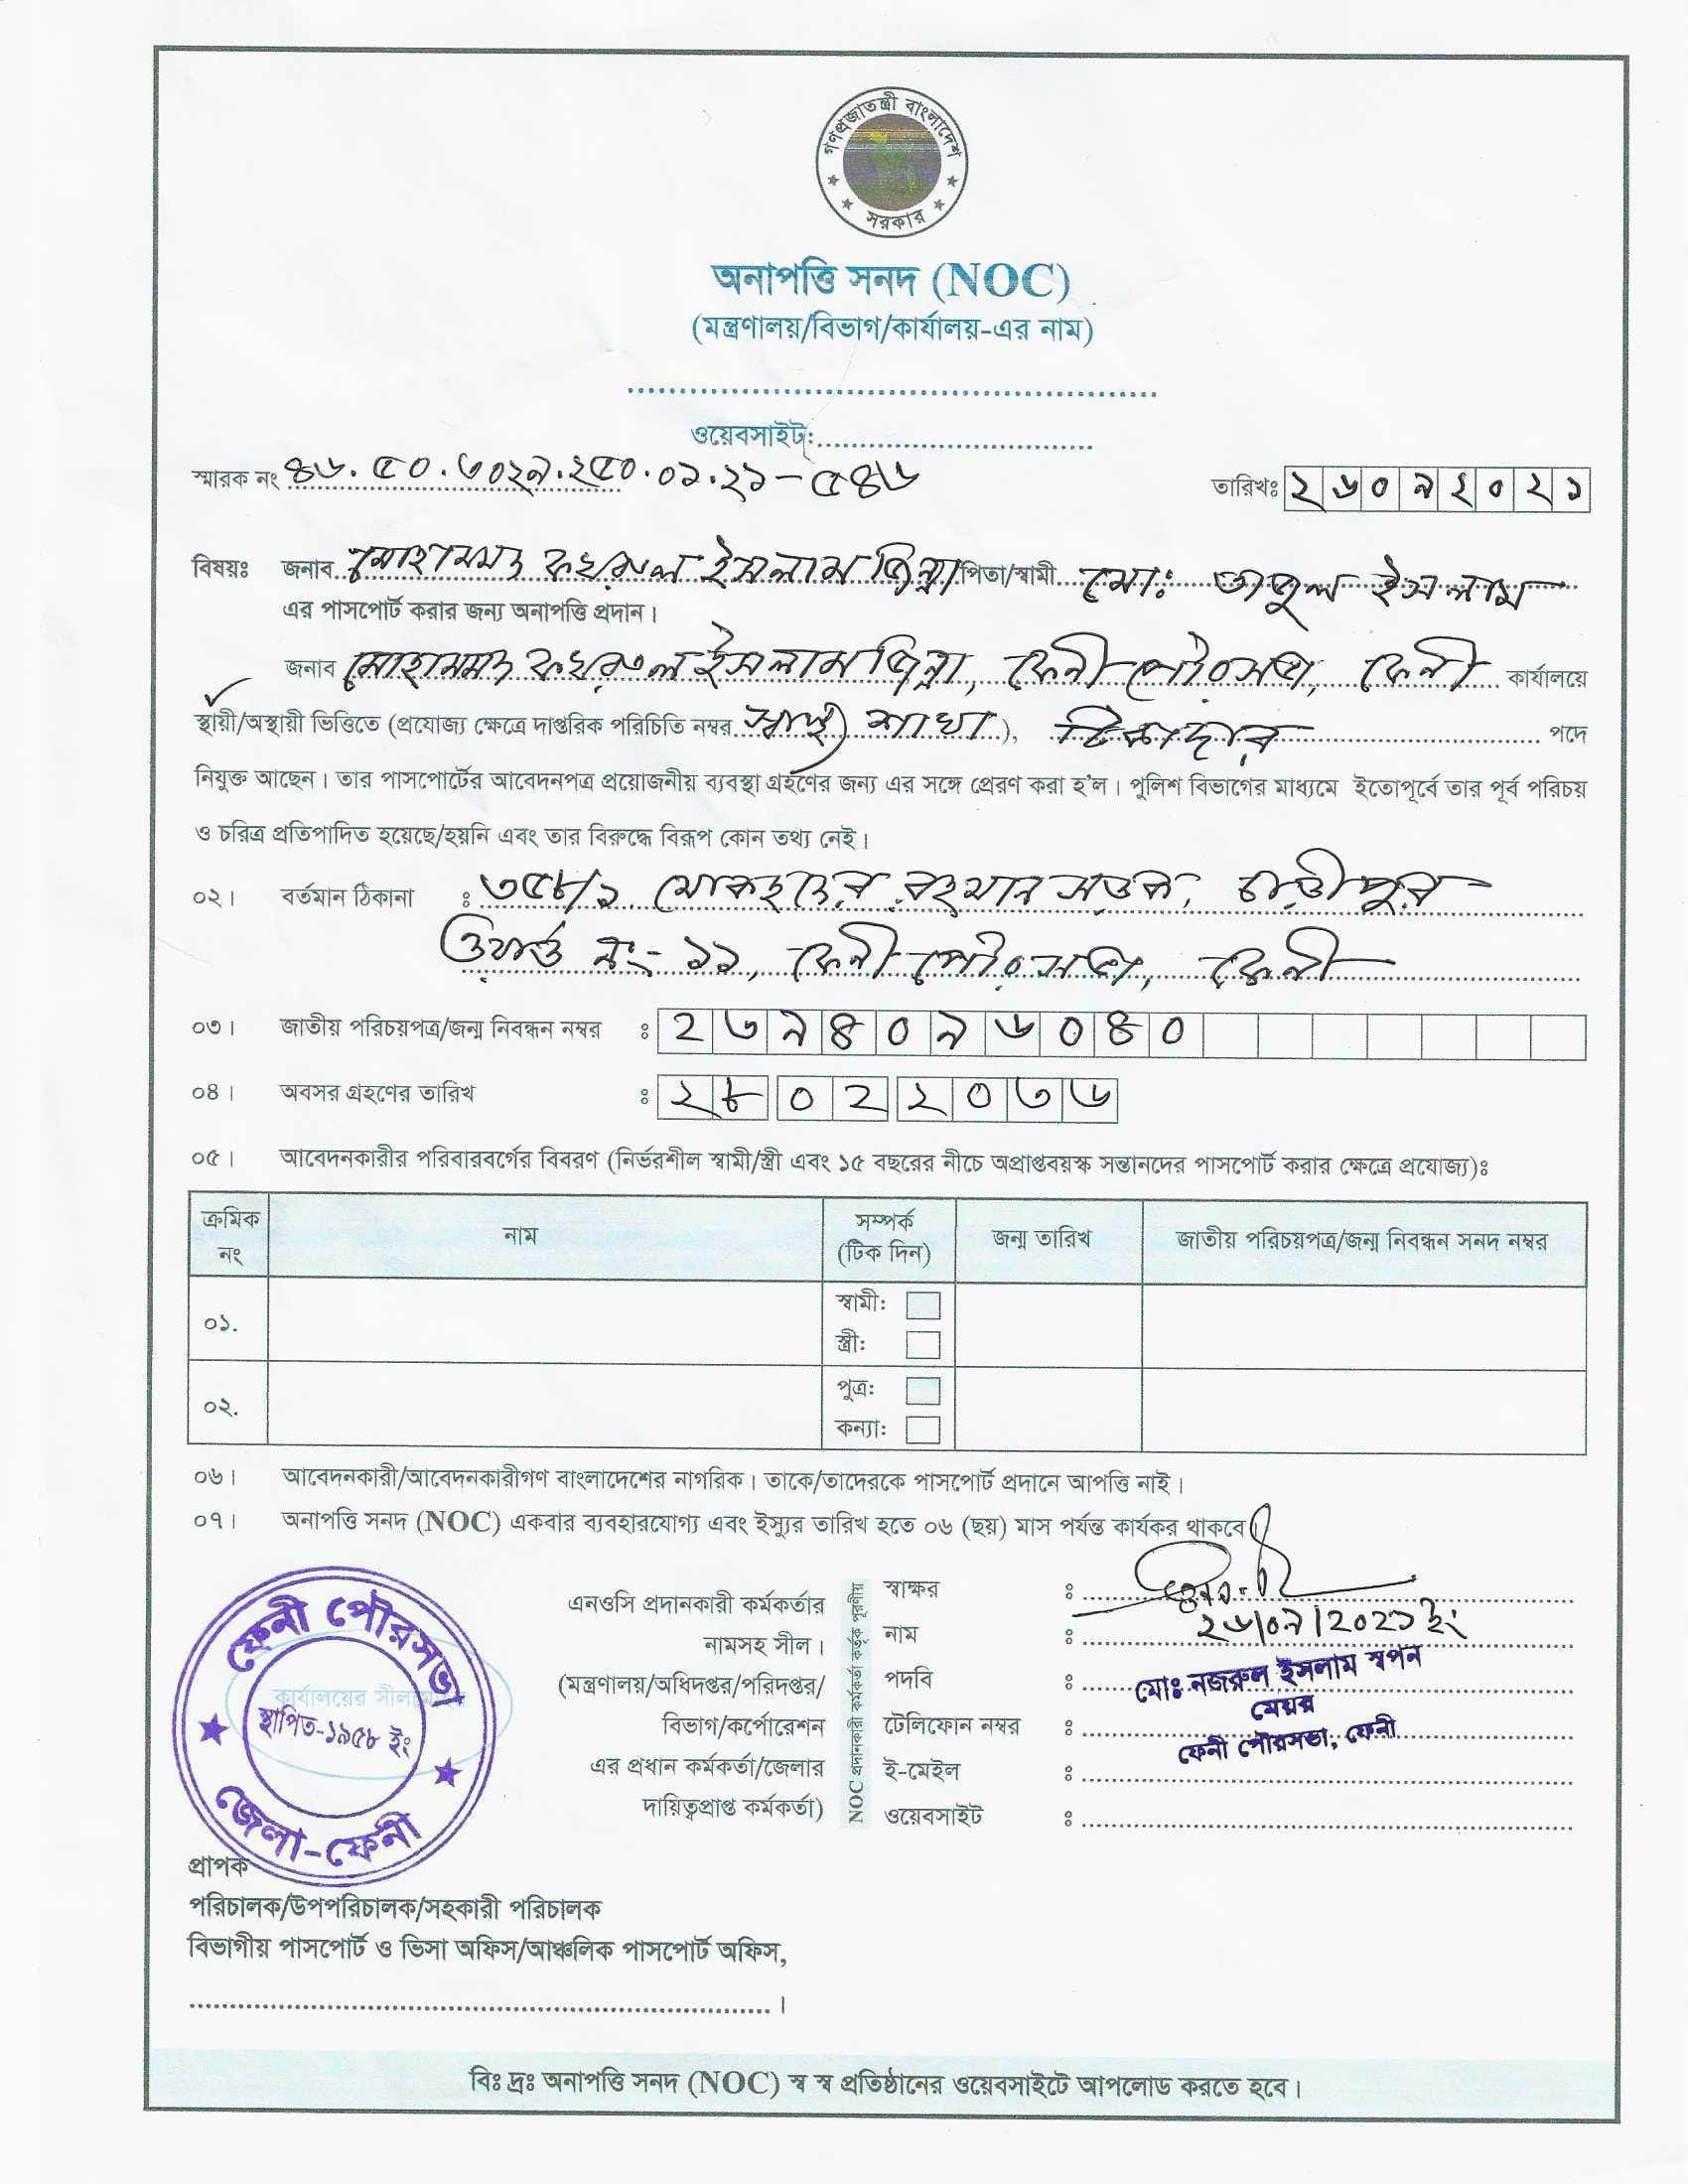 গণপ্রজাতন্ত্রী বাংলাদেশ
সরকার
অনাপত্তি সনদ (NOC)
(মন্ত্রণালয়/বিভাগ/কার্যালয়-এর নাম)
ওয়েবসাইট:
স্মারক নং ৪৬.৫০.৩০২৯.২৫০.০১.২১-৫৪৬ তারিখঃ ২৬০৯২০২১
বিষয়ঃ জনাব মোহাম্মদ ফখরুল ইসলাম জিন্না পিতা/স্বামী মোঃ তাজুল ইসলাম
এর পাসপোর্ট করার জন্য অনাপত্তি প্রদান।
জনাব মোহাম্মদ ফখরুল ইসলাম জিন্না, ফেনী পৌরসভা, ফেনী কার্যালয়ে
স্থায়ী/অস্থায়ী ভিত্তিতে (প্রযোজ্য ক্ষেত্রে দাপ্তরিক পরিচিতি নম্বর স্বাস্থ্য শাখা), টিকাদার পদে
নিযুক্ত আছেন। তার পাসপোর্টের আবেদনপত্র প্রয়োজনীয় ব্যবস্থা গ্রহণের জন্য এর সঙ্গে প্রেরণ করা হ'ল। পুলিশ বিভাগের মাধ্যমে ইতোপূর্বে তার পূর্ব পরিচয়
ও চরিত্র প্রতিপাদিত হয়েছে/হয়নি এবং তার বিরুদ্ধে বিরূপ কোন তথ্য নেই।
০২। বর্তমান ঠিকানা : ৩৫৮/১ রহমান সড়ক, চাড়ীপুর
ওয়ার্ড নং- ১১, ফেনী পৌরসভা, ফেনী
০৩। জাতীয় পরিচয়পত্র/জন্ম নিবন্ধন নম্বর : ২৩৯৪০৯৬০৪০
০৪। অবসর গ্রহণের তারিখ : ২৮ ০২ ২০৩৬
০৫। আবেদনকারীর পরিবারবর্গের বিবরণ (নির্ভরশীল স্বামী/স্ত্রী এবং ১৫ বছরের নীচে অপ্রাপ্তবয়স্ক সন্তানদের পাসপোর্ট করার ক্ষেত্রে প্রযোজ্য)ঃ
ক্রমিক নং নাম সম্পর্ক (টিক দিন) জন্ম তারিখ জাতীয় পরিচয়পত্র/জন্ম নিবন্ধন সনদ নম্বর
০১. স্বামী:
স্ত্রী:
০২. পুত্র:
কন্যা:
০৬। আবেদনকারী/আবেদনকারীগণ বাংলাদেশের নাগরিক। তাকে/তাদেরকে পাসপোর্ট প্রদানে আপত্তি নাই।
০৭। অনাপত্তি সনদ (NOC) একবার ব্যবহারযোগ্য এবং ইস্যুর তারিখ হতে ০৬ (ছয়) মাস পর্যন্ত কার্যকর থাকবে।
ফেনী পৌরসভা
কার্যালয়ের
স্থাপিত-১৯৫৮ ইং
জেলা-ফেনী
এনওসি প্রদানকারী কর্মকর্তার
নামসহ সীল।
(মন্ত্রণালয়/অধিদপ্তর/পরিদপ্তর/
বিভাগ/কর্পোরেশন
এর প্রধান কর্মকর্তা/জেলার
দায়িত্বপ্রাপ্ত কর্মকর্তা)
NOC প্রদানকারী কর্মকর্তা কর্তৃক পূরণীয়
স্বাক্ষর :
২৬/০৯/২০২১ ইং
নাম :
পদবি : মোঃ নজরুল ইসলাম স্বপন
মেয়র
টেলিফোন নম্বর : ফেনী পৌরসভা, ফেনী
ই-মেইল :
ওয়েবসাইট :
প্রাপক
পরিচালক/উপপরিচালক/সহকারী পরিচালক
বিভাগীয় পাসপোর্ট ও ভিসা অফিস/আঞ্চলিক পাসপোর্ট অফিস,
বিঃ দ্রঃ অনাপত্তি সনদ (NOC) স্ব স্ব প্রতিষ্ঠানের ওয়েবসাইটে আপলোড করতে হবে।